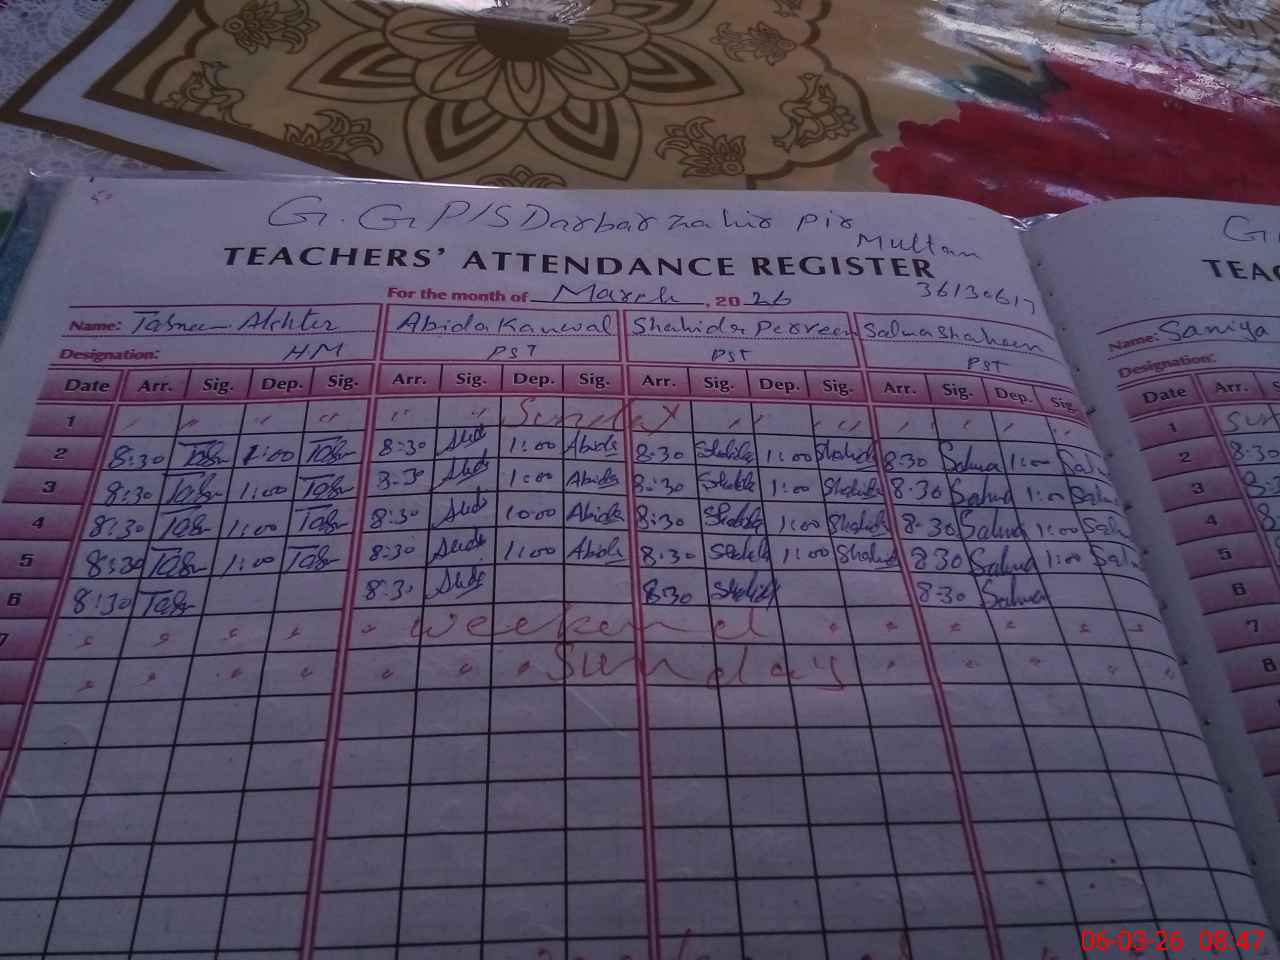 G. G P/S Darbar zahir Pir
Multan
TEACHERS' ATTENDANCE REGISTER
36130617
For the month of March, 2026
Name: Tasneem Akhter Abida Kanwal Shahida Perveen Salma Shaheen
Designation: HM PST PST PST
Date Arr. Sig. Dep. Sig. Arr. Sig. Dep. Sig. Arr. Sig. Dep. Sig. Arr. Sig. Dep. Sig.
1 " " " " " " Sunday " " " " " " "
2 8:30 1:00 8:30 1:00 Abida 8:30 Shahida 1:00 Shahida 8:30 Salma 1:00
3 8:30 1:00 8:30 1:00 Abida 8:30 Shahida 1:00 Shahida 8:30 Salma 1:00 Salma
4 8:30 1:00 8:30 Abida 8:30 Shahida 1:00 Shahida 8:30 Salma 1:00
5 8:30 1:00 8:30 1:00 Abida 8:30 Shahida 1:00 Shahida 8:30 Salma 1:00
6 8:30 8:30 8:30 Shahida 8:30 Salma
7 " " " " " weekend " " " " " "
" " " " " " " Sunday " " " " "
G
TEAC
Name: Saniya
Designation:
Date Arr. S
1 Sun
2 8:30
3 8:
4 8
5 8
6
7
8
06-03-26 08:47